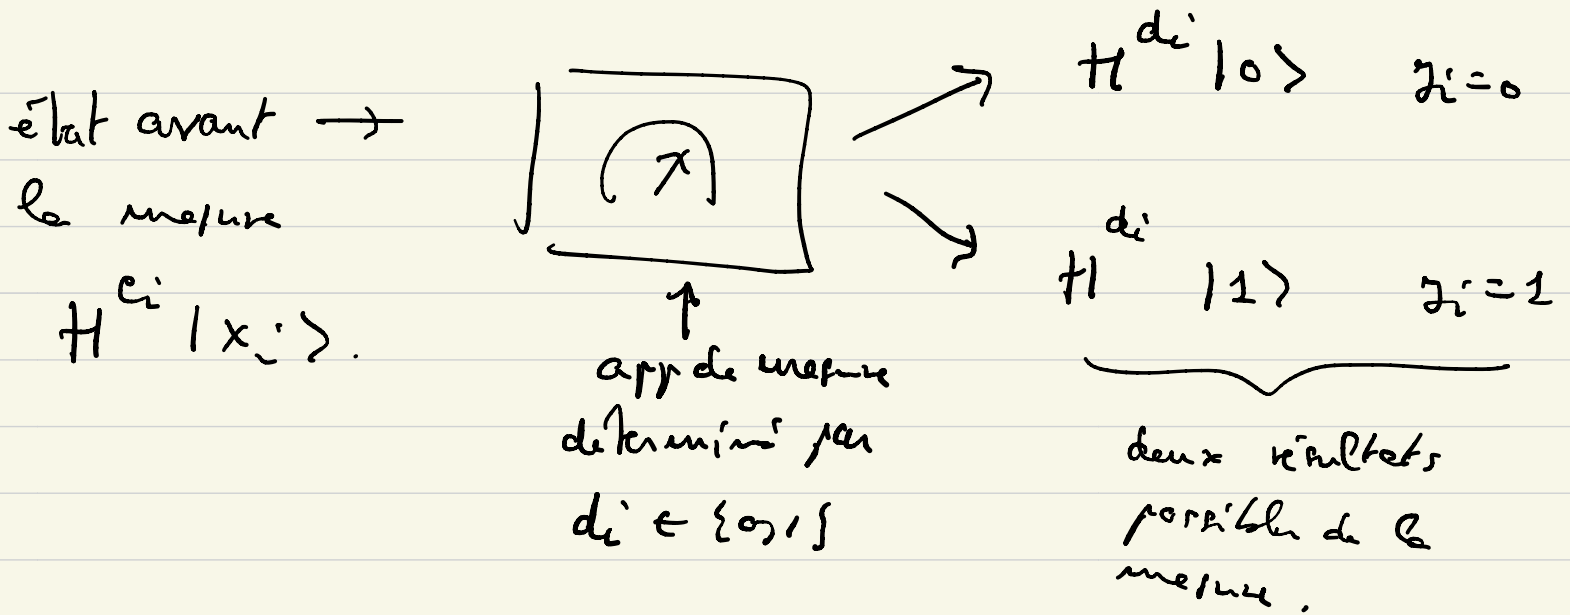 état avant →
la mesure
H^{ei} |xi>.
app de mesure
déterminé par
di ∈ {0,1}
H^{di} |0> yi=0
H^{di} |1> yi=1
deux résultats
possibles de la
mesure.